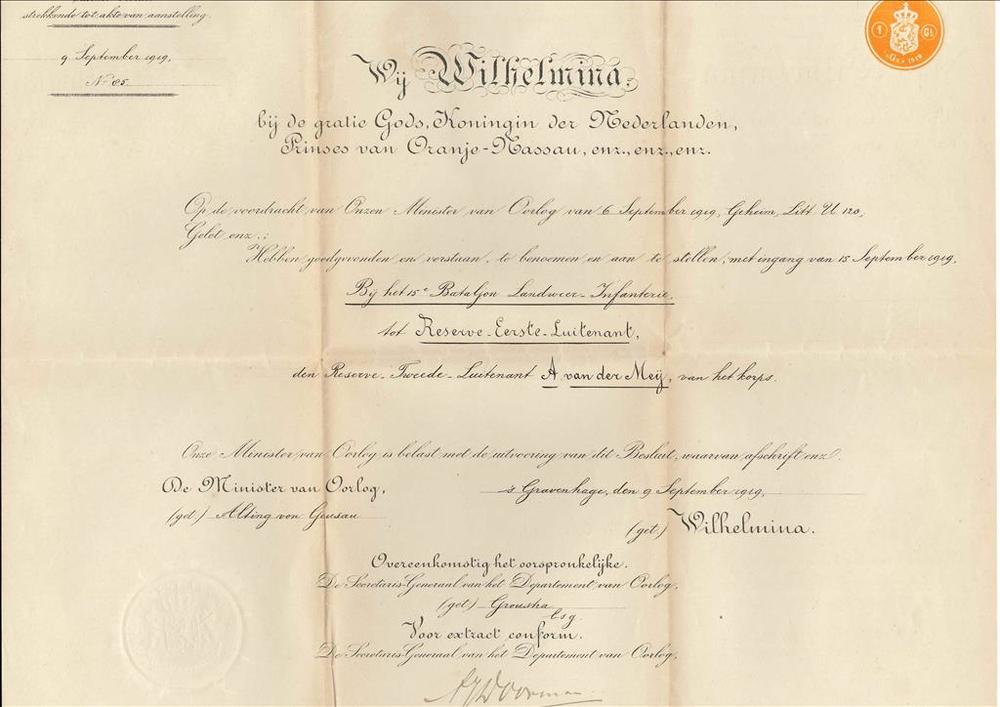 strekkende tot akte van aanstelling.
9 September 1919,
No 85.
1 Gl.
1919
Wij Wilhelmina.
bij de gratie Gods, Koningin der Nederlanden,
Prinses van Oranje-Nassau, enz., enz., enz.
Op de voordracht van Onzen Minister van Oorlog van 6 September 1919, Geheim, Litt. U 120,
Gelet enz.:
Hebben goedgevonden en verstaan, te benoemen en aan te stellen, met ingang van 15 September 1919,
Bij het 15e Bataljon Landweer-Infanterie,
tot Reserve-Eerste-Luitenant,
den Reserve-Tweede-Luitenant A. van der Meij, van het korps.
Onze Minister van Oorlog is belast met de uitvoering van dit Besluit, waarvan afschrift enz.
De Minister van Oorlog,
's Gravenhage, den 9 September 1919,
(get.) Alting von Geusau
(get.) Wilhelmina.
Overeenkomstig het oorspronkelijke.
De Secretaris-Generaal van het Departement van Oorlog,
(get.)
lsg.
Voor extract conform.
De Secretaris-Generaal van het Departement van Oorlog,